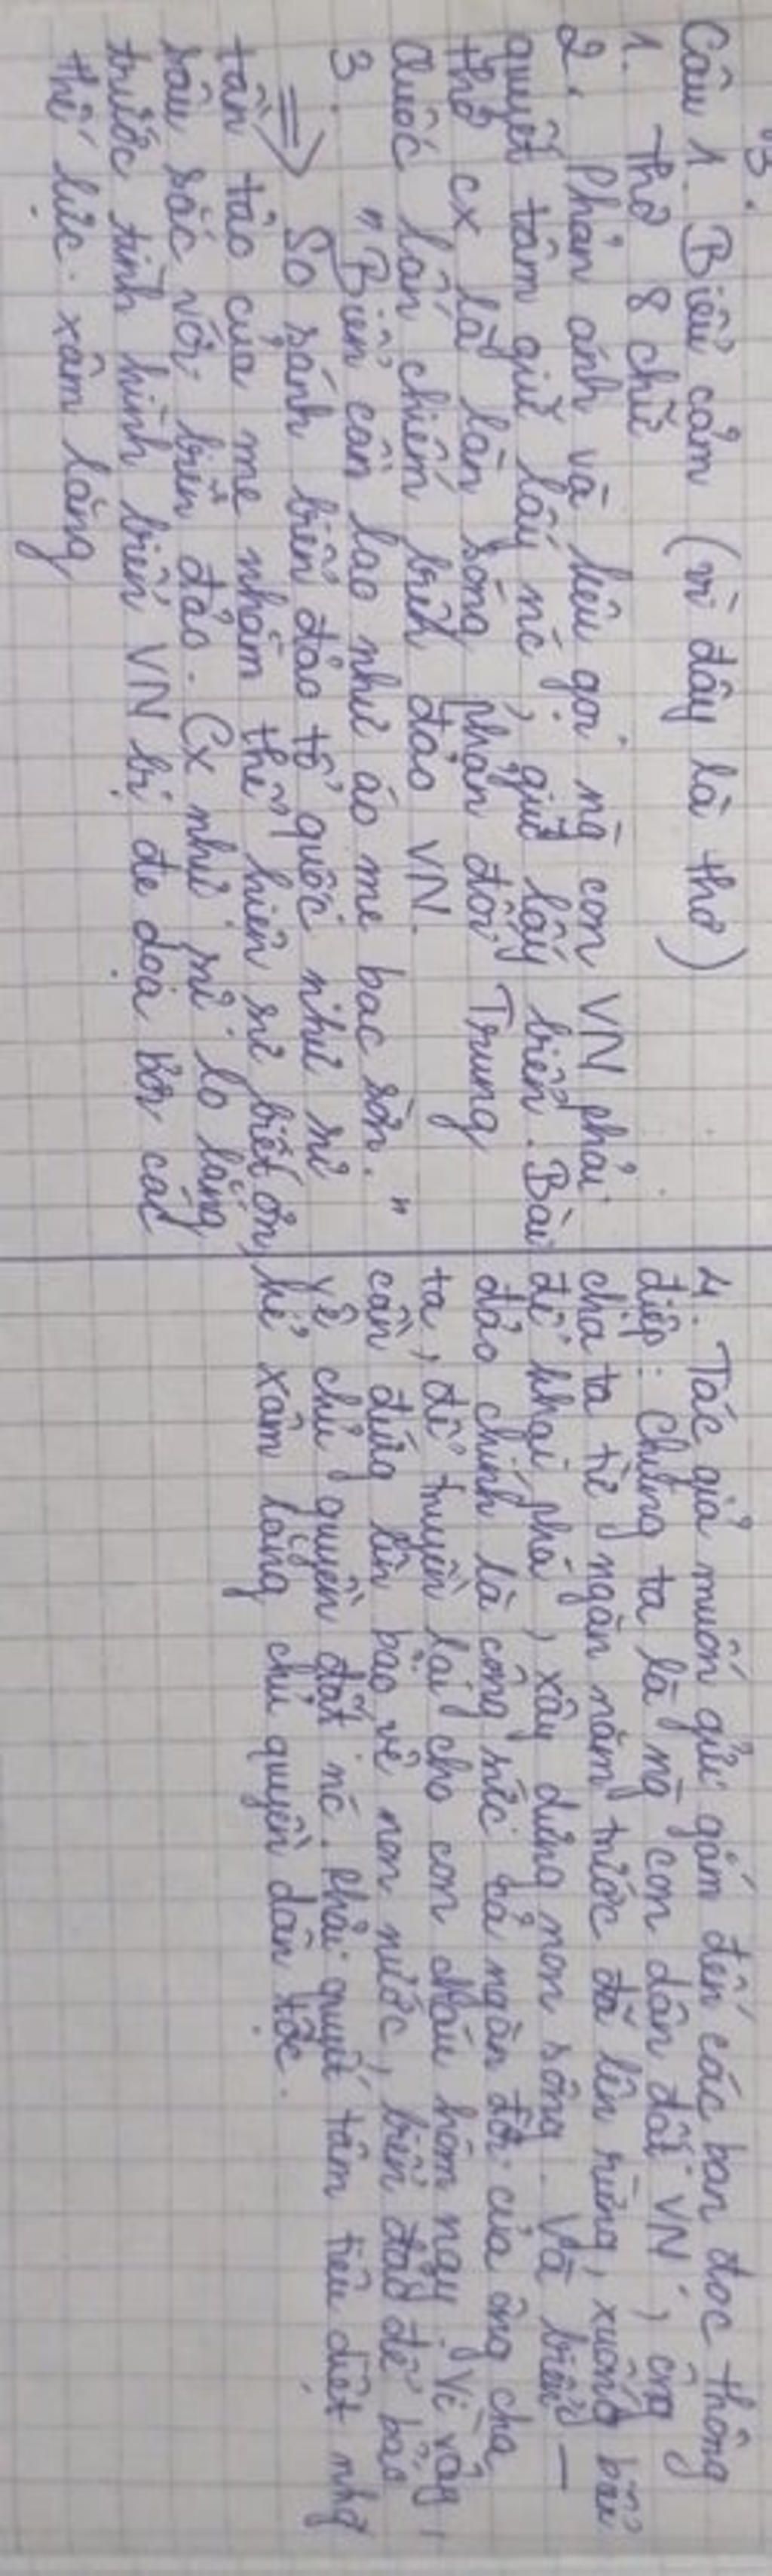 B.
Câu 1. Biểu cảm (vì đây là thơ)
1. Thơ 8 chữ
2. Phản ánh và kêu gọi ng con VN phải
quyết tâm giữ lấy nc, giữ lấy biển. Bài
thơ cx là làn sóng phản đối Trung
Quốc lấn chiếm biển đảo VN.
3. "Biển cần lao như áo mẹ bạc sờn."
=> So sánh biển đảo tổ quốc như sự
tần tảo của mẹ nhằm thể hiện sự biết ơn,
sâu sắc với biển đảo. Cx như sự lo lắng
trước tình hình biển VN bị đe doạ bởi các
thế lực xâm lăng
4. Tác giả muốn gửi gắm đến các bạn đọc thông
điệp: Chúng ta là ng con dân đất VN, ông
cha ta từ ngàn năm trước đã lên rừng, xuống biển
để khai phá, xây dựng non sông. Và biển –
đảo chính là công sức cả ngàn đời của ông cha
ta, để truyền lại cho con cháu hôm nay. Vì vậy,
cần đứng lên bảo vệ non nước, biển đảo để bảo
vệ chủ quyền đất nc. Phải quyết tâm tiêu diệt nhg
kẻ xâm lăng chủ quyền dân tộc.